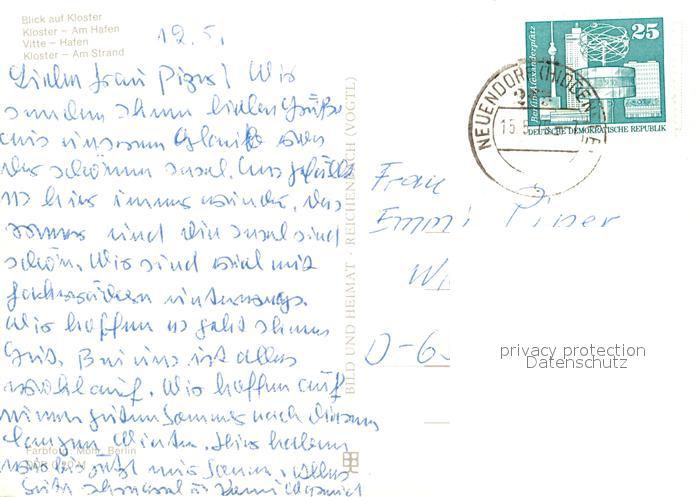 Blick auf Kloster
Kloster – Am Hafen
Vitte – Hafen
Kloster – Am Strand
12. 5.
Liebe Frau Piper! Wir
senden Ihnen liebe Grüße
aus unserem Urlaub von
der schönen Insel. Uns gefällt
es hier immer wieder, das
und die Insel sind
schön. Wir sind viel mit
Fahrrädern unterwegs.
Wir hoffen es geht Ihnen
gut. Bei uns ist alles
wohlauf. Wir hoffen auf
einen guten Sommer nach diesem
langen Winter. Hier haben
wir bis jetzt nur Sonne. Alles
Gute
Farbfoto: Mohr, Berlin
BILD UND HEIMAT · REICHENBACH (VOGTL)
25
Berlin-Alexanderplatz
DEUTSCHE DEMOKRATISCHE REPUBLIK
NEUENDORF (HIDDENSEE)
15.5.
Frau
Emmi Piper
D-6
privacy protection
Datenschutz